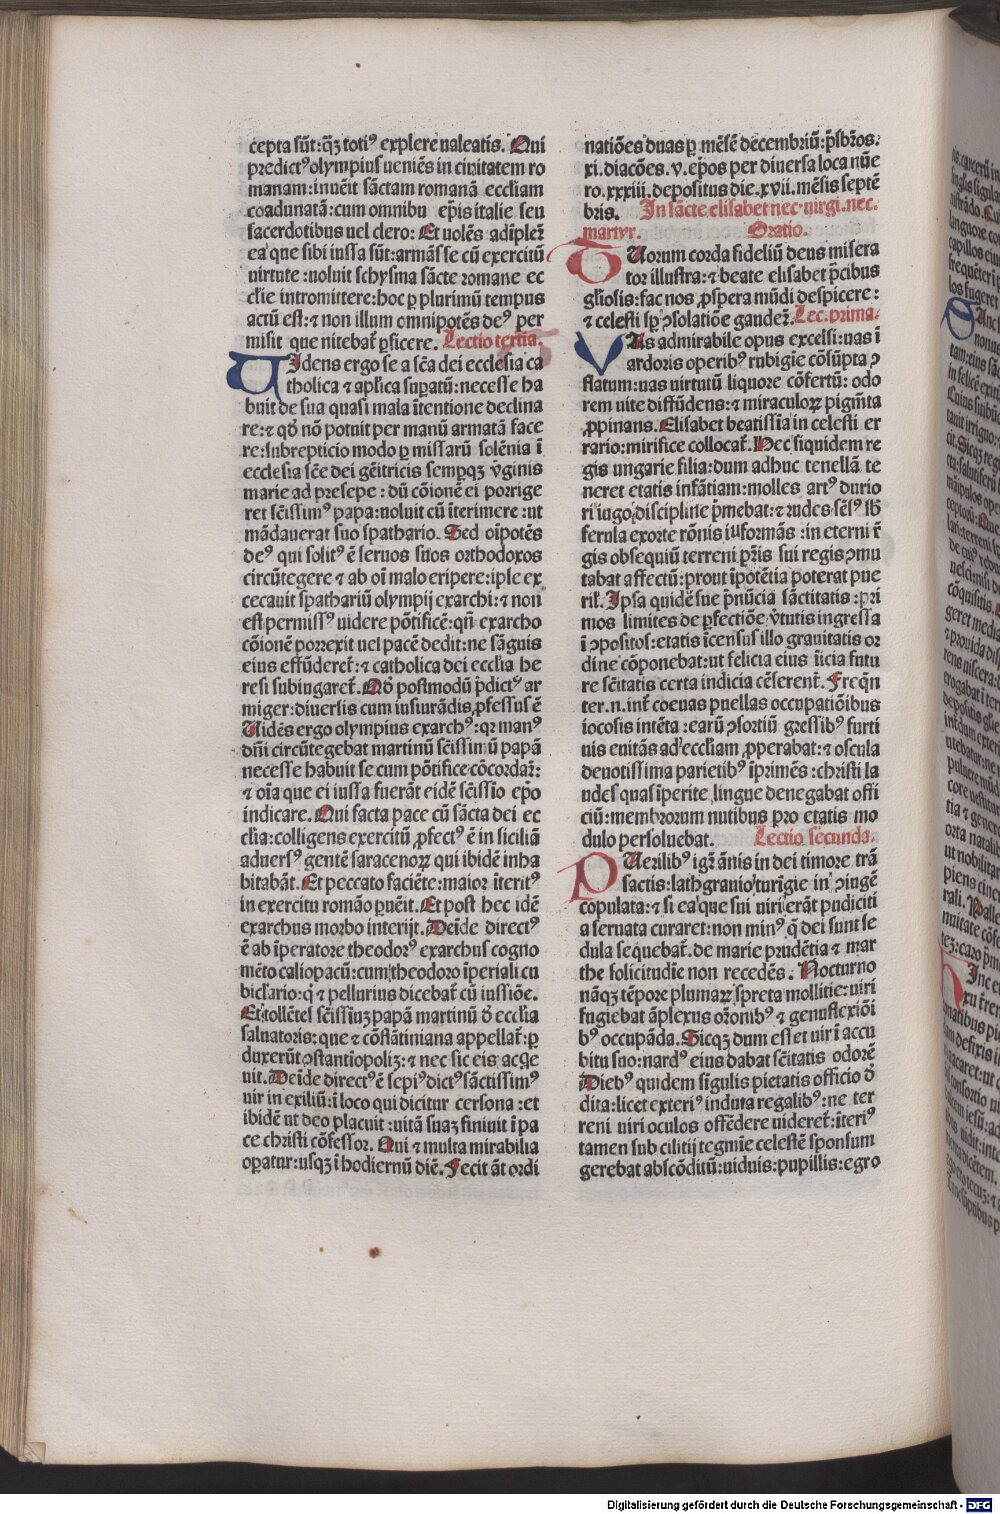 cepta sūt:qꝫ totiꝰ explere ualeatis. Qui
predictꝰ olympius ueniēs in ciuitatem ro
manam:inuēit sāctam romanā eccliam
coadunatā:cum omnibu ep̄is italie seu
sacerdotibus uel clero: Et uolēs adīpler̄
ea que sibi iussa sūt:armās se cū exercitū
uirtute :uoluit schysma sācte romane ec
clīe intromittere:hoc ꝑ plurimū tempus
actū est:⁊ non illum omnipotēs deꝰ per
misit que nitebat̄ ꝑficere. Lectio tertia.
UIdens ergo se a scā dei ecclesia ca
tholica ⁊ apl̄ica suꝑatū:necesse ha
buit de sua quasi mala ītentione declina
re:⁊ qđ nō potuit per manū armatā face
re:subrepticio modo ꝑ missarū solēnia ī
ecclesia scē dei gēitricis sempqꝫ v̄ginis
marie ad presepe : dū cōionē ei porrige
ret scīssimꝰ papa:uoluit cū īterimere :ut
mādauerat suo spathario. Sed oīpotēs
deꝰ qui solitꝰ ē seruos suos orthodoxos
circūtegere ⁊ ab oī malo eripere:ipse ex
cecauit spathariū olympij exarchi:⁊ non
est permissꝰ uidere pōtificē:qn̄ exarcho
cōionē porrexit uel pacē dedit:ne sāguis
eius effūderet̄:⁊ catholica dei ecclīa he
resi subiugaret̄. Qđ postmodū p̄dictꝰ ar
miger:diuersis cum iusiurādis ꝓfessus ē
Uidēs ergo olympius exarchꝰ:qꝛ manꝰ
dn̄i circūtegebat martinū scīssimū papā
necesse habuit se cum pōtifice cōcordar̄:
⁊ oīa que ei iussa fuerāt eidē scīssio ep̄o
indicare. Qui facta pace cū sācta dei ec
clīa:colligens exercitū ꝓfectꝰ ē in siciliā
aduersꝰ gentē saracenoꝝ qui ibidē inha
bitabāt. Et peccato faciēte:maior īteritꝰ
in exercitu romāo ꝑuēit. Et post hec idē
exarchus morbo interijt. Deīde directꝰ
ē ab īperatore theodorꝰ exarchus cogno
mēto caliopacū:cum theodoro īperiali cu
biclario:q̄ ⁊ pellurius dicebat̄ cū iussiōe.
Et tollētes scīssiuꝫ papā martinū đ ecclīa
saluatoris:que ⁊ cōstātiniana appellat̄:ꝑ
duxerūt ꝯstantīopoliꝫ:⁊ nec sic eis acq̄e
uit. Deīde directꝰ ē sepiꝰ dictꝰ sāctissimꝰ
uir in exiliū:ī loco qui dicitur cersona :et
ibidē ut deo placuit :uitā suaꝫ finiuit ī pa
ce christi cōfessor. Qui ⁊ multa mirabilia
oꝑatur:usqꝫ ī hodiernū diē. Fecit āt ordi
natiōes duas ꝑ mēsē decembriū:p̄sbr̄os.
xi. diacōes. v. ep̄os per diuersa loca nūe
ro. xxxiii. depositus die. xvii. mēsis septē
bris. In sācte elisabet nec uirgi. nec.
martyr. Oratio.
TUorum corda fideliū deus misera
tor illustra:⁊ beate elisabet p̄cibus
gl̄iosis:fac nos ꝓspera mūdi despicere :
⁊ celesti sp̄ ꝯsolatiōe gauder̄. Lec. prima.
VAs admirabile opus excelsi:uas ī
ardoris operibꝰ rubigīe cōsūpta ꝯ
flatum:uas uirtutū liquore cōfertū: odo
rem uite diffūdens:⁊ miraculoꝝ pigm̄ta
ꝓpinans. Elisabet beatissīa in celesti er
rario:mirifice collocat̄. Hec siquidem re
gis ungarie filia:dum adhuc tenellā te
neret etatis infātiam:molles artꝰ durio
ri iugo discipline p̄mebat:⁊ rudes sēsꝰ sb̄
ferula exorte rōnis iuformās :in eterni r̄
gis obsequiū terreni pr̄is sui regis ꝯmu
tabat affectū:prout īpotētia poterat pue
ril̄. Ipsa quidē sue p̄nūcia sāctitatis :pri
mos limites de ꝑfectiōe v̄tutis ingressa
ī ꝯpositos:etatis īcensus illo grauitatis or
dine cōponebat:ut felicia eius īicia futu
re scītatis certa indicia cēserent̄. Freq̄n
ter. n. int̄ coeuas puellas occupatiōibus
iocosis intēta :earū ꝯsortiū gressibꝰ furti
uis euitās ad eccliam ꝓperabat:⁊ oscula
deuotissima parietibꝰ īprimēs :christi la
udes quas īperite lingue denegabat offi
ciū:membrorum nutibus pro etatis mo
dulo persoluebat. Lectio secunda.
PUerilibꝰ igr̄ ānis in dei timore trā
sactis:lathgrauio turīgie in ꝯiugē
copulata:⁊ si ea que sui uiri erāt pudiciti
a seruata curaret:non minꝰ q̄ dei sunt se
dula sequebat̄. de marie prudētia ⁊ mar
the solicitudīe non recedēs. Nocturno
nāqꝫ tēpore plumaꝝ spreta mollitie:uiri
fugiebat āplexus or̄onibꝰ ⁊ genuflexiōi
bꝰ occupāda. Sicqꝫ dum esset uir ī accu
bitu suo:nardꝰ eius dabat scītatis odorē
Diebꝰ quidem sīgulis pietatis officio đ
dita:licet exteriꝰ induta regalibꝰ:ne ter
reni uiri oculos offēdere uideret̄:īteriꝰ
tamen sub cilitij tegmīe celestē sponsum
gerebat abscōditū:uiduis:pupillis:egro
Digitalisierung gefördert durch die Deutsche Forschungsgemeinschaft - DFG